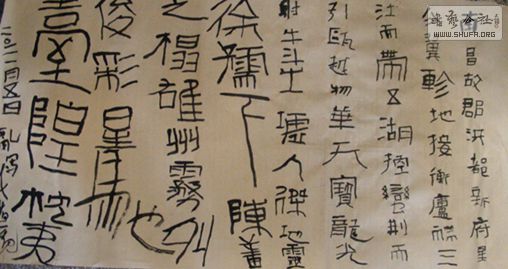 昌故郡洪都新府星
翼軫地接衡廬襟三
江而帶五湖控蠻荊而
引甌越物華天寶龍光
射牛斗之墟人傑地靈
徐孺下陳蕃
之榻雄州霧列
俊彩星馳也
臺隍枕夷
月五日亂寫
WWW.SHUFA.ORG